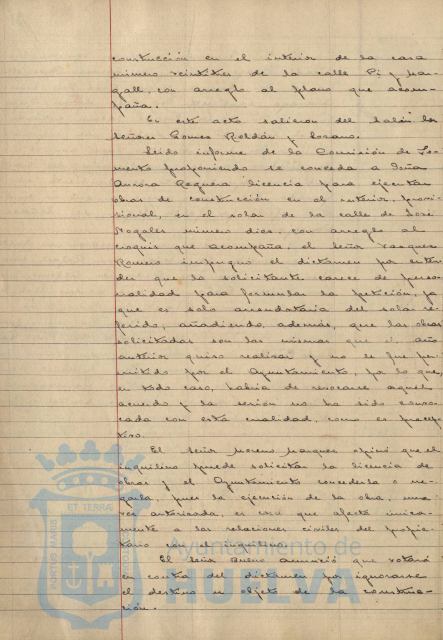 construcción en el interior de la casa
número veintitres de la calle Pi y Mar-
gall, con arreglo al plano que acom-
paña.
En este acto salieron del salón los
señores Gomez Roldán y Lozano.
Leido informe de la Comisión de Fo-
mento proponiendo se conceda a Doña
Aurora Requera licencia para ejecutar
obras de construcción en el interior, provi-
sional, en el solar de la calle de José
Nogales número dios, con arreglo al
croquis que acompaña, el señor Vazquez
Romero impugnó el dictamen por enten-
der que la solicitante carece de perso-
nalidad para formular la petición, ya
que es solo arrendataria del solar re-
ferido, añadiendo, además, que las obras
solicitadas son las mismas que el año
anterior quiso realizar y no le fue per-
mitido por el Ayuntamiento, por lo que,
en todo caso, habia de revocarse aquel
acuerdo y la sesión no ha sido convo-
cada con esta cualidad, como es precep-
tivo.
El señor Moreno Marquez opinó que el
inquilino puede solicitar la licencia de
obras y el Ayuntamiento concederla o ne-
garla, pues la ejecución de la obra, una
vez autorizada, es cosa que afecta única-
mente a las relaciones civiles del propie-
tario con el inquilino.
El señor Bueno anunció que votará
en contra del dictamen por ignorarse
el destino u objeto de la construc-
ción.
PORTUS MARIS
ET TERRÆ
Ayuntamiento de
HUELVA